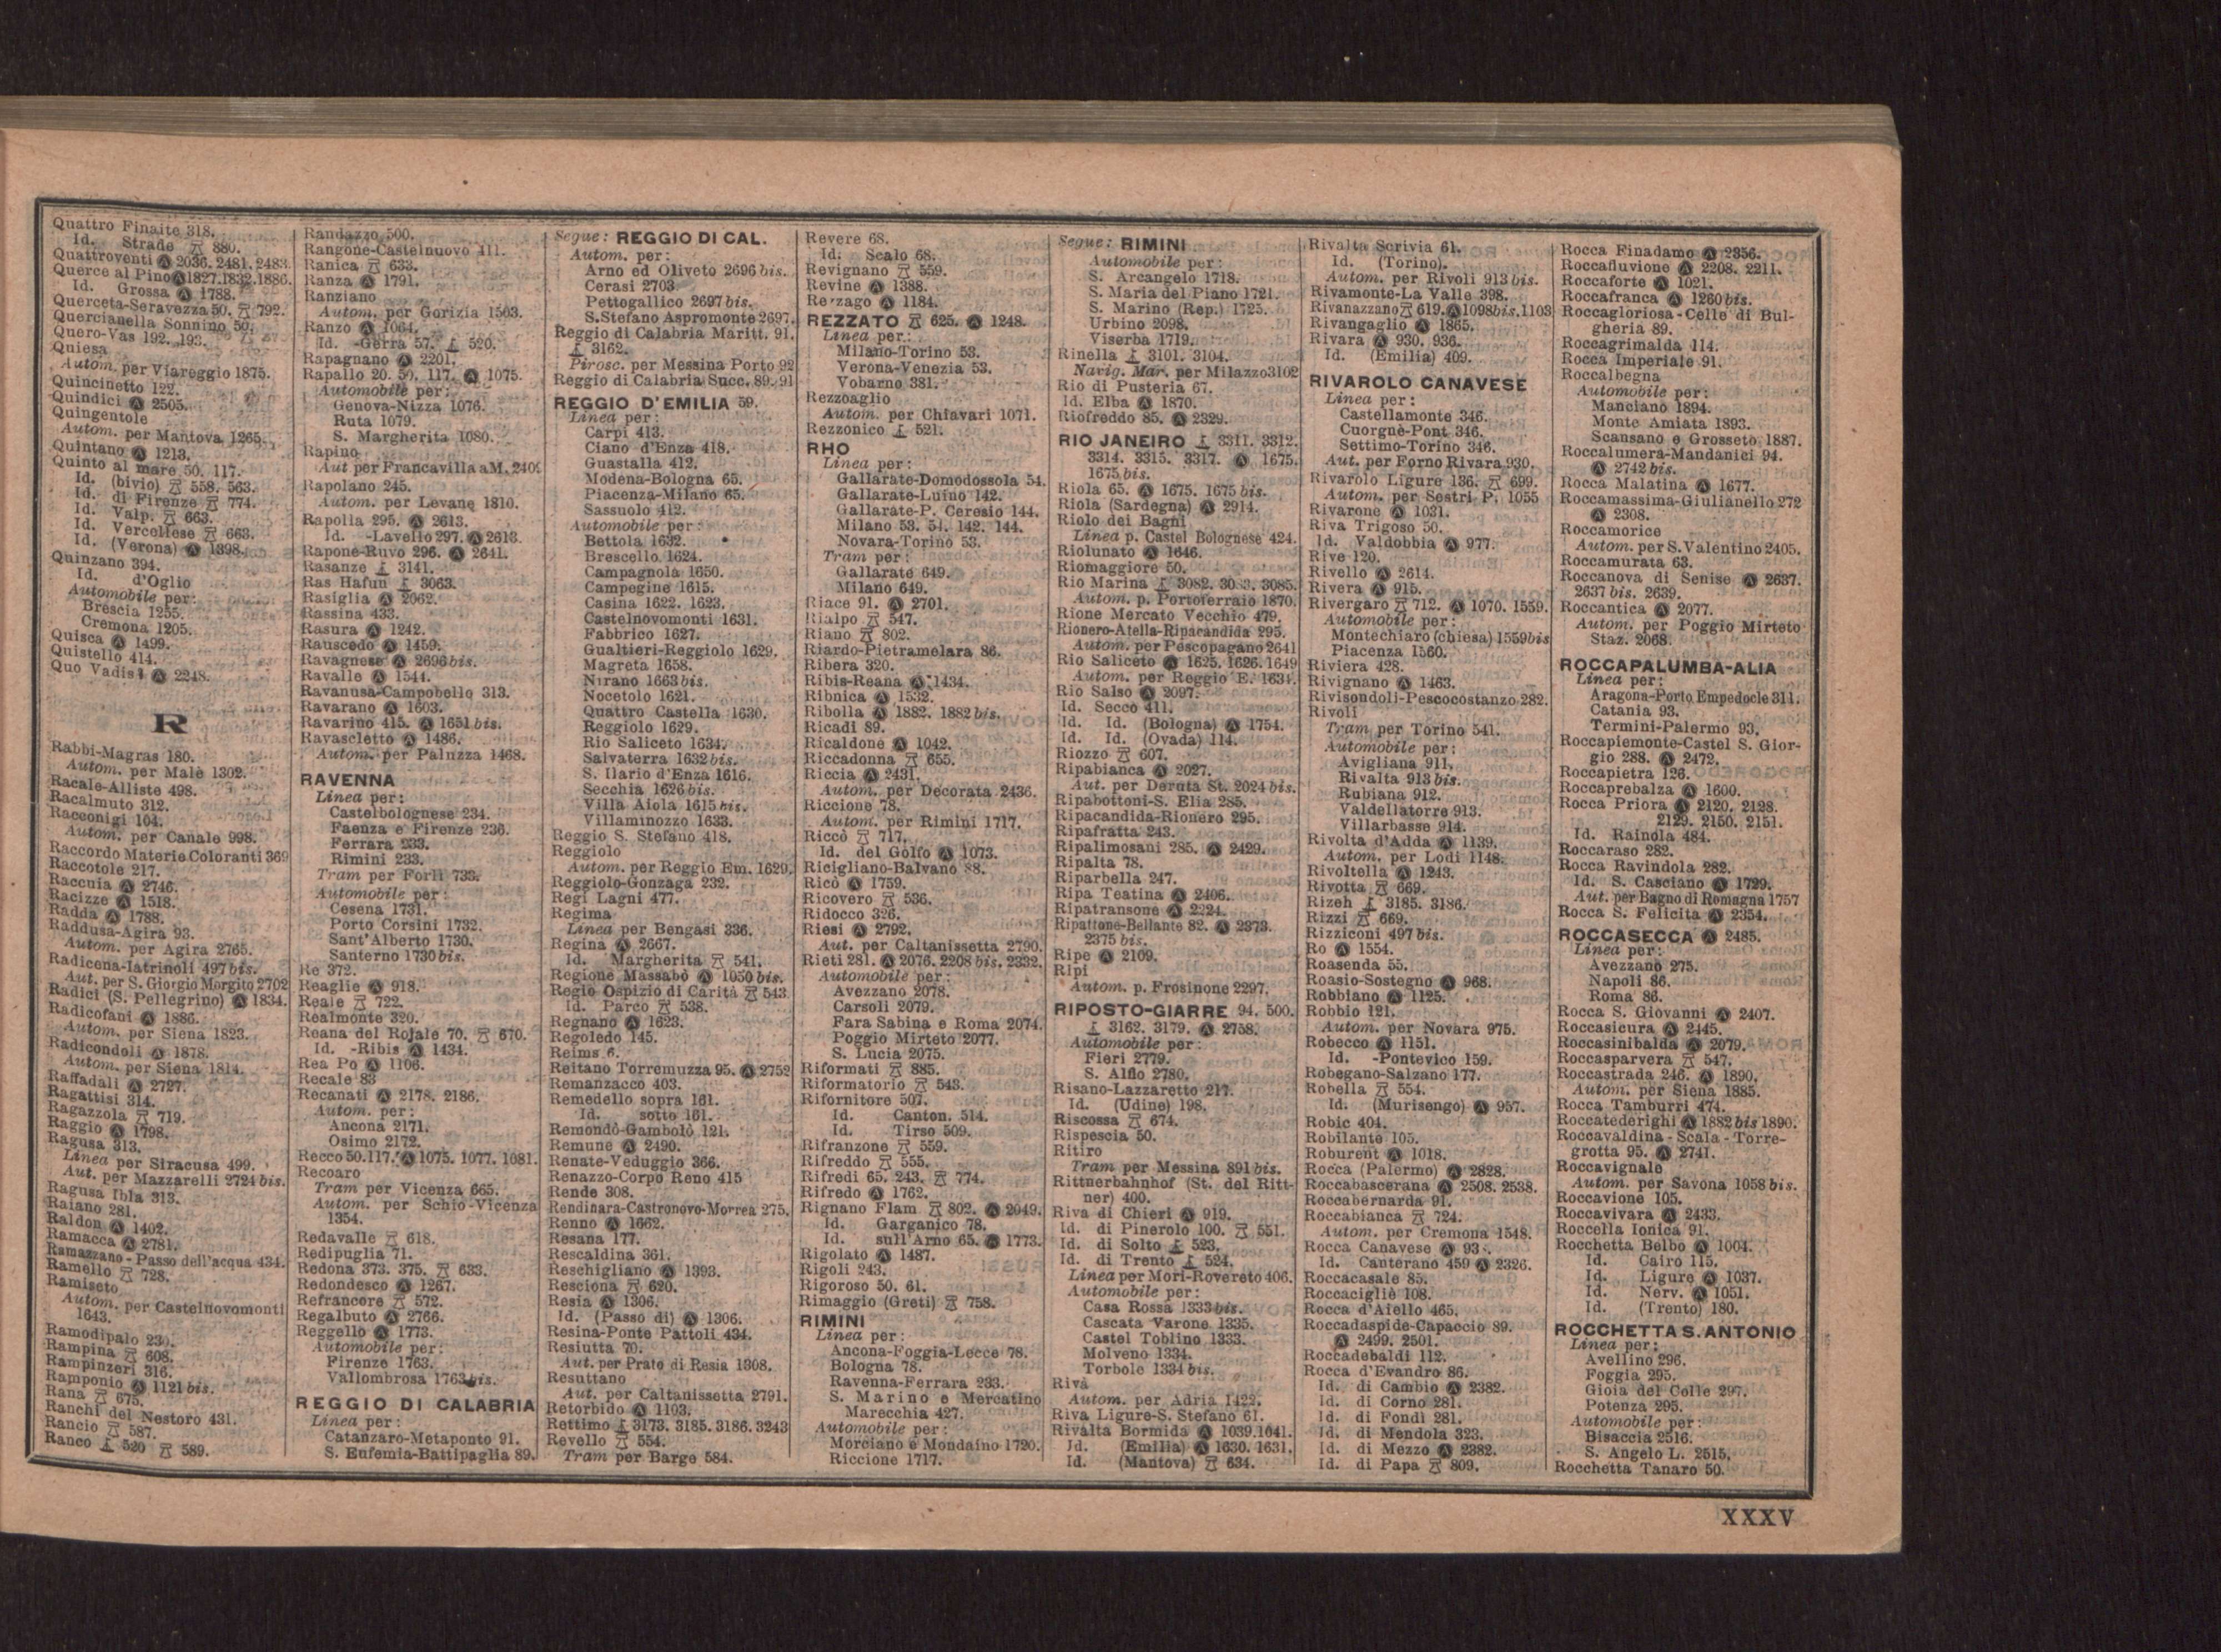 Quattro Finaite 318.
Id. Strade 880.
Quattroventi Ⓐ 2036. 2481. 2483.
Querce al Pino Ⓐ 1827.1832.1886.
Id. Grossa Ⓐ 1788.
Querceta-Seravezza 50. 792.
Quercianella Sonnino 50.
Quero-Vas 192. 193.
Quiesa
Autom. per Viareggio 1875.
Quincinetto 122.
Quindici Ⓐ 2505.
Quingentole
Autom. per Mantova 1265.
Quintano Ⓐ 1213.
Quinto al mare 50. 117.
Id. (bivio) 558. 563.
Id. di Firenze 774.
Id. Valp. 663.
Id. Vercellese 663.
Id. (Verona) Ⓐ 1398.
Quinzano 394.
Id. d'Oglio
Automobile per:
Brescia 1255.
Cremona 1205.
Quisca Ⓐ 1499.
Quistello 414.
Quo Vadis? Ⓐ 2248.
R
Rabbi-Magras 180.
Autom. per Malè 1302.
Racale-Alliste 498.
Racalmuto 312.
Racconigi 104.
Autom. per Canale 998.
Raccordo Materie Coloranti 369
Raccotole 217.
Raccuia Ⓐ 2746.
Racizze Ⓐ 1518.
Radda Ⓐ 1788.
Raddusa-Agira 93.
Autom. per Agira 2765.
Radicena-Iatrinoli 497 bis.
Aut. per S. Giorgio Morgito 2702
Radici (S. Pellegrino) Ⓐ 1834.
Radicofani Ⓐ 1886.
Autom. per Siena 1823.
Radicondoli Ⓐ 1878.
Autom. per Siena 1814.
Raffadali Ⓐ 2727.
Ragattisi 314.
Ragazzola 719.
Raggio Ⓐ 1798.
Ragusa 313.
Linea per Siracusa 499.
Aut. per Mazzarelli 2724 bis.
Ragusa Ibla 313.
Raiano 281.
Raldon Ⓐ 1402.
Ramacca Ⓐ 2781.
Ramazzano-Passo dell'acqua 434.
Ramello 728.
Ramiseto
Autom. per Castelnovomonti
1643.
Ramodipalo
Rampina 608.
Rampinzeri 316.
Ramponio Ⓐ 1121 bis.
Rana 675.
Ranchi del Nestoro 431.
Rancio 587.
Ranco 520 589.
Randazzo 500.
Rangone-Castelnuovo 411.
Ranica 633.
Ranza Ⓐ 1791.
Ranziano
Autom. per Gorizia 1503.
Ranzo Ⓐ 1064.
Id. -Gerra 57. 520.
Rapagnano Ⓐ 2201.
Rapallo 20. 50. 117. Ⓐ 1075.
Automobile per:
Genova-Nizza 1076.
Ruta 1079.
S. Margherita 1080.
Rapino
Aut per Francavilla a M.
Rapolano 245.
Autom. per Levane 1810.
Rapolla 295. Ⓐ 2613.
Id. -Lavello 297. Ⓐ 2613.
Rapone-Ruvo 296. Ⓐ 2641.
Rasanze 3141.
Ras Hafun 3063.
Rasiglia Ⓐ 2062.
Rassina 433.
Rasura Ⓐ 1242.
Rauscedo Ⓐ 1459.
Ravagnese Ⓐ 2696 bis.
Ravalle Ⓐ 1544.
Ravanusa-Campobello 313.
Ravarano Ⓐ 1603.
Ravarino 415. Ⓐ 1651 bis.
Ravascletto Ⓐ 1486.
Autom. per Paluzza 1468.
RAVENNA
Linea per:
Castelbolognese 234.
Faenza e Firenze 236.
Ferrara 233.
Rimini 233.
Tram per Forlì 733.
Automobile per:
Cesena 1731.
Porto Corsini 1732.
Sant'Alberto 1730.
Santerno 1730 bis.
Re 372.
Reaglie Ⓐ 918.
Reale 722.
Realmonte 320.
Reana del Rojale 70. 670.
Id. -Ribis Ⓐ 1434.
Rea Po Ⓐ 1106.
Recale 83
Recanati Ⓐ 2178. 2186.
Autom. per:
Ancona 2171.
Osimo 2172.
Recco 50.117. Ⓐ 1075. 1077. 1081.
Recoaro
Tram per Vicenza 665.
Autom. per Schio-Vicenza
1354.
Redavalle 618.
Redipuglia 71.
Redona 373. 375. 633.
Redondesco Ⓐ 1267.
Refrancore 572.
Regalbuto Ⓐ 2766.
Reggello Ⓐ 1773.
Automobile per:
Firenze 1763.
Vallombrosa 1763 bis.
REGGIO DI CALABRIA
Linea per:
Catanzaro-Metaponto 91.
S. Eufemia-Battipaglia 89.
Segue: REGGIO DI CAL.
Autom. per:
Arno ed Oliveto 2696 bis.
Cerasi 2703
Pettogallico 2697 bis.
S. Stefano Aspromonte 2697.
Reggio di Calabria Maritt. 91.
3162.
Pirosc. per Messina Porto 92
Reggio di Calabria Succ. 89. 91
REGGIO D'EMILIA 59.
Linea per:
Carpi 413.
Ciano d'Enza 418.
Guastalla 412.
Modena-Bologna 65.
Piacenza-Milano 65.
Sassuolo 412.
Automobile per:
Bettola 1632.
Brescello 1624.
Campagnola 1650.
Campegine 1615.
Casina 1622. 1623.
Castelnovomonti 1631.
Fabbrico 1627.
Gualtieri-Reggiolo 1629.
Magreta 1658.
Nirano 1663 bis.
Nocetolo 1621.
Quattro Castella 1630.
Reggiolo 1629.
Rio Saliceto 1634.
Salvaterra 1632 bis.
S. Ilario d'Enza 1616.
Secchia 1626 bis.
Villa Aiola 1615 bis.
Villaminozzo 1633.
Reggio S. Stefano 418.
Reggiolo
Autom. per Reggio Em. 1629.
Reggiolo-Gonzaga 232.
Regi Lagni 477.
Regima
Linea per Bengasi 336.
Regina Ⓐ 2667.
Id. Margherita 541.
Regione Massabò Ⓐ 1050 bis.
Regio Ospizio di Carità 543
Id. Parco 538.
Regnano Ⓐ 1623.
Regoledo 145.
Reims 6.
Reitano Torremuzza 95. Ⓐ 2752
Remanzacco 403.
Remedello sopra 161.
Id. sotto 161.
Remondò-Gambolò 121.
Remune Ⓐ 2490.
Renate-Veduggio 366.
Renazzo-Corpo Reno 415
Rende 308.
Rendinara-Castronovo-Morrea 275.
Renno Ⓐ 1662.
Resana 177.
Rescaldina 361.
Reschigliano Ⓐ 1393.
Resciona 620.
Resia Ⓐ 1306.
Id. (Passo di) Ⓐ 1306.
Resina-Ponte Pattoli 434.
Resiutta 70.
Aut. per Prato di Resia 1308.
Resuttano
Aut. per Caltanissetta 2791.
Retorbido Ⓐ 1103.
Rettimo 3173. 3185. 3186. 3243
Revello 554.
Tram per Barge 584.
Revere 68.
Id. Scalo 68.
Revignano 559.
Revine Ⓐ 1388.
Rezzago Ⓐ 1184.
REZZATO 625. Ⓐ 1248.
Linea per:
Milano-Torino 53.
Verona-Venezia 53.
Vobarno 381.
Rezzoaglio
Autom. per Chiavari 1071.
Rezzonico 521.
RHO
Linea per:
Gallarate-Domodossola 54.
Gallarate-Luino 142.
Gallarate-P. Ceresio 144.
Milano 53. 54. 142. 144.
Novara-Torino 53.
Tram per:
Gallarate 649.
Milano 649.
Riace 91. Ⓐ 2701.
Rialpo 547.
Riano 802.
Riardo-Pietramelara 86.
Ribera 320.
Ribis-Reana Ⓐ 1434.
Ribnica Ⓐ 1532.
Ribolla Ⓐ 1882. 1882 bis.
Ricadi 89.
Ricaldone Ⓐ 1042.
Riccadonna 655.
Riccia Ⓐ 2431.
Autom. per Decorata 2436.
Riccione 78.
Autom. per Rimini 1717.
Riccò 717.
Id. del Golfo Ⓐ 1073.
Ricigliano-Balvano 88.
Ricò Ⓐ 1759.
Ricovero 536.
Ridocco 326.
Riesi Ⓐ 2792.
Aut. per Caltanissetta 2790.
Rieti 281. Ⓐ 2076. 2208 bis. 2332.
Automobile per:
Avezzano 2078.
Carsoli 2079.
Fara Sabina e Roma 2074.
Poggio Mirteto 2077.
S. Lucia 2075.
Riformati 885.
Riformatorio 543.
Rifornitore 507.
Id. Canton. 514.
Id. Tirso 509.
Rifranzone 559.
Rifreddo 555.
Rifredi 65. 243. 774.
Rifredo Ⓐ 1762.
Rignano Flam 802. Ⓐ 2049.
Id. Garganico 78.
Id. sull'Arno 65. Ⓐ 1773.
Rigolato Ⓐ 1487.
Rigoli 243.
Rigoroso 50. 61.
Rimaggio (Greti) 758.
RIMINI
Linea per:
Ancona-Foggia-Lecce 78.
Bologna 78.
Ravenna-Ferrara 233.
S. Marino e Mercatino
Marecchia 427.
Automobile per:
Morciano e Mondaino 1720.
Riccione 1717.
Segue: RIMINI
Automobile per:
S. Arcangelo 1718.
S. Maria del Piano 1721.
S. Marino (Rep.) 1725.
Urbino 2098.
Viserba 1719.
Rinella 3101. 3104.
Navig. Mar. per Milazzo 3102
Rio di Pusteria 67.
Id. Elba Ⓐ 1870.
Riofreddo 85. Ⓐ 2329.
RIO JANEIRO 3311. 3312.
3314. 3315. 3317. Ⓐ 1675.
1675 bis.
Riola 65. Ⓐ 1675. 1675 bis.
Riola (Sardegna) Ⓐ 2914.
Riolo dei Bagni
Linea p. Castel Bolognese 424.
Riolunato Ⓐ 1646.
Riomaggiore 50.
Rio Marina 3082. 3083. 3085.
Autom. p. Portoferraio 1870.
Rione Mercato Vecchio 479.
Rionero-Atella-Ripacandida 295.
Autom. per Pescopagano 2641
Rio Saliceto Ⓐ 1625. 1626. 1649
Autom. per Reggio E. 1634.
Rio Salso Ⓐ 2097.
Id. Secco 411.
Id. Id. (Bologna) Ⓐ 1754.
Id. Id. (Ovada) 114.
Riozzo 607.
Ripabianca Ⓐ 2027.
Aut. per Deruta St. 2024 bis.
Ripabottoni-S. Elia 285.
Ripacandida-Rionero 295.
Ripafratta 243.
Ripalimosani 285. Ⓐ 2429.
Ripalta 78.
Riparbella 247.
Ripa Teatina Ⓐ 2406.
Ripatransone Ⓐ 2224.
Ripattone-Bellante 82. Ⓐ 2373.
2375 bis.
Ripe Ⓐ 2109.
Ripi
Autom. p. Frosinone 2297.
RIPOSTO-GIARRE 94. 500.
3162. 3179. Ⓐ 2758.
Automobile per:
Fieri 2779.
S. Alfio 2780.
Risano-Lazzaretto 217.
Id. (Udine) 198.
Riscossa 674.
Rispescia 50.
Ritiro
Tram per Messina 891 bis.
Rittnerbahnhof (St. del Ritt-
ner) 400.
Riva di Chieri Ⓐ 919.
Id. di Pinerolo 100. 551.
Id. di Solto 523.
Id. di Trento 524.
Linea per Mori-Rovereto 406.
Automobile per:
Casa Rossa 1333 bis.
Cascata Varone 1335.
Castel Toblino 1333.
Molveno 1334.
Torbole 1334 bis.
Rivà
Autom. per Adria 1422.
Riva Ligure-S. Stefano 61.
Rivalta Bormida Ⓐ 1039.1041.
Id. (Emilia) Ⓐ 1630. 1631.
Id. (Mantova) 634.
Rivalta Scrivia 61.
Id. (Torino).
Autom. per Rivoli 913 bis.
Rivamonte-La Valle 398.
Rivanazzano 619. Ⓐ 1098 bis. 1103
Rivangaglio Ⓐ 1865.
Rivara Ⓐ 930. 936.
Id. (Emilia) 409.
RIVAROLO CANAVESE
Linea per:
Castellamonte 346.
Cuorgnè-Pont 346.
Settimo-Torino 346.
Aut. per Forno Rivara 930.
Rivarolo Ligure 136. 699.
Autom. per Sestri P. 1055
Rivarone Ⓐ 1031.
Riva Trigoso 50.
Id. Valdobbia Ⓐ 977.
Rive 120.
Rivello Ⓐ 2614.
Rivera Ⓐ 915.
Rivergaro 712. Ⓐ 1070. 1559.
Automobile per:
Montechiaro (chiesa) 1559 bis
Piacenza 1560.
Riviera 428.
Rivignano Ⓐ 1463.
Rivisondoli-Pescocostanzo 282.
Rivoli
Tram per Torino 541.
Automobile per:
Avigliana 911.
Rivalta 913 bis.
Rubiana 912.
Valdellatorre 913.
Villarbasse 914.
Rivolta d'Adda Ⓐ 1139.
Autom. per Lodi 1148.
Rivoltella Ⓐ 1243.
Rivotta 669.
Rizeh 3185. 3186.
Rizzi 669.
Rizziconi 497 bis.
Ro Ⓐ 1554.
Roasenda 55.
Roasio-Sostegno Ⓐ 968.
Robbiano Ⓐ 1125.
Robbio 121.
Autom. per Novara 975.
Robecco Ⓐ 1151.
Id. -Pontevico 159.
Robegano-Salzano 177.
Robella 554.
Id. (Murisengo) Ⓐ 957.
Robic 404.
Robilante 105.
Roburent Ⓐ 1018.
Rocca (Palermo) Ⓐ 2828.
Roccabascerana Ⓐ 2508. 2538.
Roccabernarda 91.
Roccabianca 724.
Autom. per Cremona 1548.
Rocca Canavese Ⓐ
Id. Canterano 459 Ⓐ 2326.
Roccacasale 85.
Roccaciglìè 108.
Rocca d'Aiello 465.
Roccadaspide-Capaccio 89.
Ⓐ 2499. 2501.
Roccadebaldi 112.
Rocca d'Evandro 86.
Id. di Cambio Ⓐ 2382.
Id. di Corno 281.
Id. di Fondi 281.
Id. di Mendola 323.
Id. di Mezzo Ⓐ 2382.
Id. di Papa 809.
Rocca Finadamo Ⓐ 2356.
Roccafluvione Ⓐ 2208. 2211.
Roccaforte Ⓐ 1021.
Roccafranca Ⓐ 1260 bis.
Roccagloriosa-Celle di Bul-
gheria 89.
Roccagrimalda 114.
Rocca Imperiale 91.
Roccalbegna
Automobile per:
Manciano 1894.
Monte Amiata 1893.
Scansano e Grosseto 1887.
Roccalumera-Mandanici 94.
Ⓐ 2742 bis.
Rocca Malatina Ⓐ 1677.
Roccamassima-Giulianello 272
Ⓐ 2308.
Roccamorice
Autom. per S. Valentino 2405.
Roccamurata 63.
Roccanova di Senise Ⓐ 2637.
2637 bis. 2639.
Roccantica Ⓐ 2077.
Autom. per Poggio Mirteto
Staz. 2068.
ROCCAPALUMBA-ALIA
Linea per:
Aragona-Porto Empedocle 311.
Catania 93.
Termini-Palermo 93.
Roccapiemonte-Castel S. Gior-
gio 288. Ⓐ 2472.
Roccapietra 126.
Roccaprebalza Ⓐ 1600.
Rocca Priora Ⓐ 2120. 2128.
2129. 2150. 2151.
Id. Rainola 484.
Roccaraso 282.
Rocca Ravindola 282.
Id. S. Casciano Ⓐ 1729.
Aut. per Bagno di Romagna 1757
Rocca S. Felicita Ⓐ 2354.
ROCCASECCA Ⓐ 2485.
Linea per:
Avezzano 275.
Napoli 86.
Roma 86.
Rocca S. Giovanni Ⓐ 2407.
Roccasicura Ⓐ 2445.
Roccasinibalda Ⓐ 2079.
Roccasparvera 547.
Roccastrada 246. Ⓐ 1890.
Autom. per Siena 1885.
Rocca Tamburri 474.
Roccatederighi Ⓐ 1882 bis 1890.
Roccavaldina-Scala-Torre-
grotta 95. Ⓐ 2741.
Roccavignale
Autom. per Savona 1058 bis.
Roccavione 105.
Roccavivara Ⓐ 2433.
Roccella Ionica 91.
Rocchetta Belbo Ⓐ 1004.
Id. Cairo 115.
Id. Ligure Ⓐ 1037.
Id. Nerv. Ⓐ 1051.
Id. (Trento) 180.
ROCCHETTA S. ANTONIO
Linea per:
Avellino 296.
Foggia 295.
Gioia del Colle 297.
Potenza 295.
Automobile per:
Bisaccia 2516.
S. Angelo L. 2515.
Rocchetta Tanaro 50.
XXXV